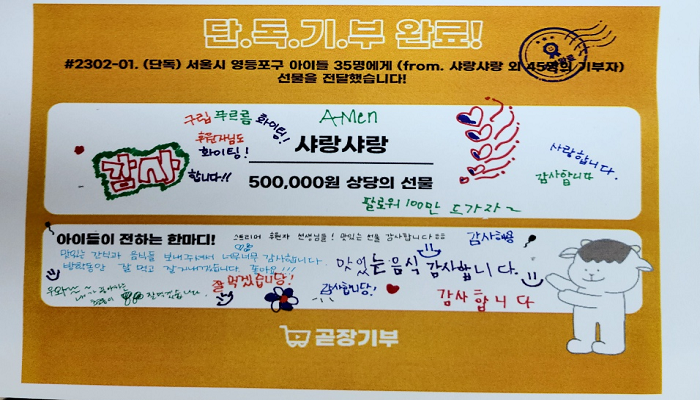 단.독.기.부 완료!
#2302-01. (단독) 서울시 영등포구 아이들 35명에게 (from. 샤랑샤랑 외 45명의 기부자)
선물을 전달했습니다!
A-Men
구립 푸르름 화이팅!
후원자님도
화이팅!
샤랑샤랑
감사
합니다!!
사랑합니다.
감사합니다
500,000원 상당의 선물
팔로워 100만 드가자~
아이들이 전하는 한마디!
스트리머 후원자 선생님들! 맛있는 선물 감사합니다
감사해용
맛있는 간식과 음식들 보내주셔서 너무너무 감사합니다.
방학동안 잘 먹고 잘 지내겠습니다.
맛있는음식 감사합니다.
잘 먹겠습니당!
감사합니당!
감사합니다
곧장기부